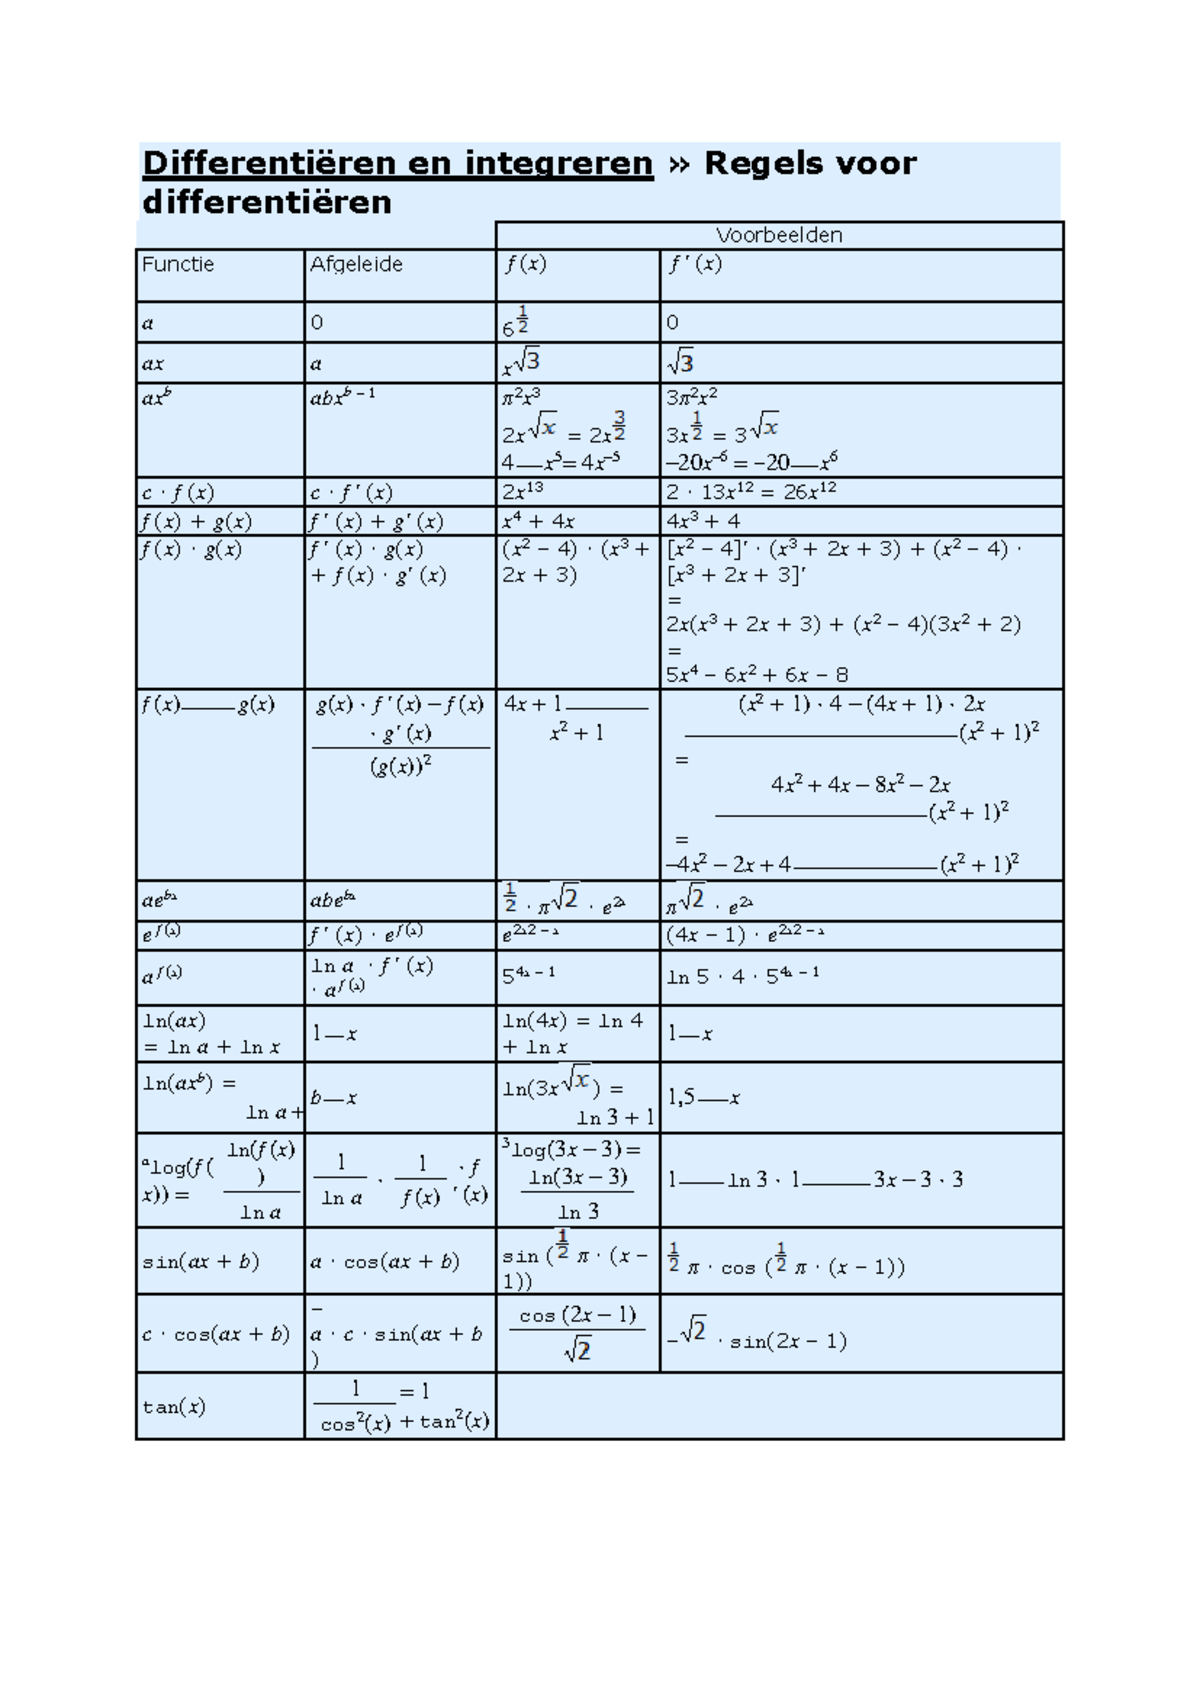 Differentiëren en integreren » Regels voor
differentiëren
Voorbeelden
Functie Afgeleide f (x) f ′ (x)
a 0 6^1/2 0
ax a x√3 √3
ax^b abx^(b – 1) π²x³ 3π²x²
2x√x = 2x^3/2 3x^1/2 = 3√x
4—x⁵= 4x⁻⁵ –20x⁻⁶ = –20—x⁶
c · f (x) c · f ′ (x) 2x¹³ 2 · 13x¹² = 26x¹²
f (x) + g(x) f ′ (x) + g′ (x) x⁴ + 4x 4x³ + 4
f (x) · g(x) f ′ (x) · g(x) (x² – 4) · (x³ + [x² – 4]′ · (x³ + 2x + 3) + (x² – 4) ·
+ f (x) · g′ (x) 2x + 3) [x³ + 2x + 3]′
=
2x(x³ + 2x + 3) + (x² – 4)(3x² + 2)
=
5x⁴ – 6x² + 6x – 8
f (x)—g(x) g(x) · f ′ (x) – f (x) 4x + 1— (x² + 1) · 4 – (4x + 1) · 2x
· g′ (x) x² + 1 —(x² + 1)²
(g(x))² =
4x² + 4x – 8x² – 2x
—(x² + 1)²
=
–4x² – 2x + 4—(x² + 1)²
ae^bx abe^bx 1/2 · π√2 · e^2x π√2 · e^2x
e^f (x) f ′ (x) · e^f (x) e^(2x2 – x) (4x – 1) · e^(2x2 – x)
a^f (x) ln a · f ′ (x) 5^(4x – 1) ln 5 · 4 · 5^(4x – 1)
· a^f (x)
ln(ax) 1—x ln(4x) = ln 4 1—x
= ln a + ln x + ln x
ln(ax^b) = b—x ln(3x√x) = 1,5—x
ln a + ln 3 + 1
ᵃlog(f( ln(f (x) 1 1 · f ³log(3x – 3) = 1—ln 3 · 1—3x – 3 · 3
x)) = ) ln a · f (x) ′ (x) ln(3x – 3)
ln a ln 3
sin(ax + b) a · cos(ax + b) sin (1/2 π · (x – 1/2 π · cos (1/2 π · (x – 1))
1))
–
c · cos(ax + b) a · c · sin(ax + b cos (2x – 1) –√2 · sin(2x – 1)
) √2
tan(x) 1 = 1
cos²(x) + tan²(x)